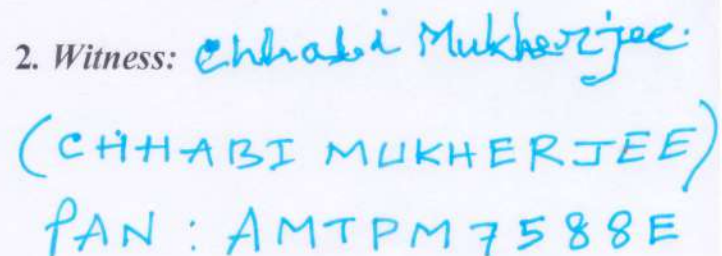 2. Witness: Chhabi Mukherjee.
(CHHABI MUKHERJEE)
PAN : AMTPM7588E